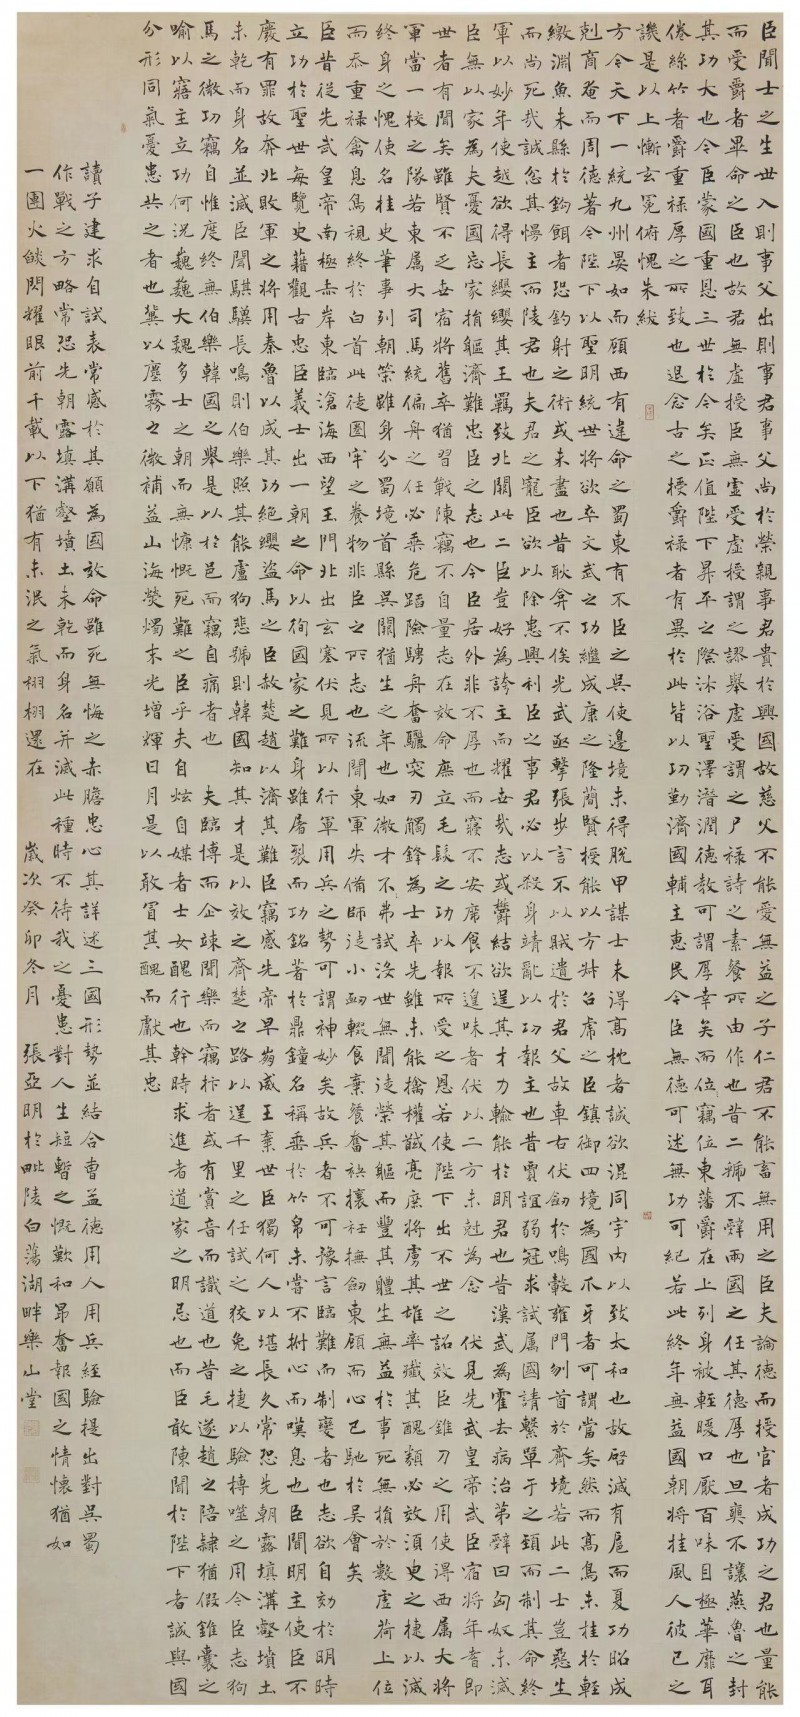 臣聞士之生世入則事父出則事君事父尚於榮親事君貴於興國故慈父不能愛無益之子仁君不能畜無用之臣夫論德而授官者成功之君也量能
而受爵者畢命之臣也故君無虛授臣無虛受虛授謂之謬舉虛受謂之尸祿詩之素餐所由作也昔二虢不辭兩國之任其德厚也旦奭不讓燕魯之封
其功大也今臣蒙國重恩三世於今矣正值陛下昇平之際沐浴聖澤潛潤德教可謂厚幸矣而位竊位東藩爵在上列身被輕暖口厭百味目極華靡耳
倦絲竹者爵重祿厚之所致也退念古之授爵祿者有異於此皆以功勤濟國輔主惠民今臣無德可述無功可紀若此終年無益國朝將挂風人彼己之
譏是以上慚玄冕俯愧朱紱
方今天下一統九州晏如而顧西有違命之蜀東有不臣之吳使邊境未得脫甲謀士未得高枕者誠欲混同宇內以致太和也故啓滅有扈而夏功昭成
剋商奄而周德著今陛下以聖明統世將欲卒文武之功繼成康之隆簡賢授能以方叔召虎之臣鎮御四境為國爪牙者可謂當矣然而高鳥未挂於輕
繳淵魚未縣於鈎餌者恐釣射之術或未盡也昔耿弇不俟光武亟擊張步言不以賊遺於君父故車右伏劒於鳴轂雍門刎首於齊境若此二士豈惡生
而尚死哉誠忿其慢主而陵君也夫君之寵臣欲以除患興利臣之事君必以殺身靖亂以功報主也昔賈誼弱冠求試屬國請繫單于之頸而制其命終
軍以妙年使越欲得長纓纓其王羈致北闕此二臣豈好為誇主而耀世哉志或鬱結欲逞其才力輸能於明君也昔漢武為霍去病治第辭曰匈奴未滅
臣無以家為夫憂國忘家捐軀濟難忠臣之志也今臣居外非不厚也而寢不安席食不遑味者伏以二方未尅為念 伏見先武皇帝武臣宿將年耆即
世者有聞矣雖賢不乏世宿將舊卒猶習戰陳竊不自量志在效命庶立毛髮之功以報所受之恩若使陛下出不世之詔效臣錐刀之用使得西屬大將
軍當一校之隊若東屬大司馬統偏舟之任必乘危蹈險騁舟奮驪突刃觸鋒為士卒先雖未能擒權馘亮庶將虜其雄率殲其醜類必效須臾之捷以滅
終身之愧使名桂史筆事列朝榮雖身分蜀境首縣吳闕猶生之年也如微才不弗試沒世無聞徒榮其軀而豐其體生無益於事死無損於數虛荷上位
而忝重祿禽息鳥視終於白首此徒圈牢之養物非臣之所志也流聞東軍失備師徒小衂輟食棄餐奮袂攘衽撫劒東顧而心已馳於吳會矣
臣昔從先武皇帝南極赤岸東臨滄海西望玉門北出玄塞伏見所以行軍用兵之勢可謂神妙矣故兵者不可豫言臨難而制變者也志欲自効於明時
立功於聖世每覽史籍觀古忠臣義士出一朝之命以徇國家之難身雖屠裂而功銘著於鼎鐘名稱垂於竹帛未嘗不拊心而嘆息也臣聞明主使臣不
廢有罪故奔北敗軍之將用秦魯以成其功絕纓盜馬之臣赦楚趙以濟其難臣竊感先帝早崩威王棄世臣獨何人以堪長久常恐先朝露填溝壑墳土
未乾而身名並滅臣聞騏驥長鳴則伯樂照其能盧狗悲號則韓國知其才是以效之齊楚之路以逞千里之任試之狡兔之捷以驗搏噬之用今臣志狗
馬之微功竊自惟度終無伯樂韓國之舉是以於邑而竊自痛者也 夫臨博而企竦聞樂而竊抃者或有賞音而識道也昔毛遂趙之陪隸猶假錐囊之
喻以寤主立功何況巍巍大魏多士之朝而無慷慨死難之臣乎夫自炫自媒者士女醜行也幹時求進者道家之明忌也而臣敢陳聞於陛下者誠與國
分形同氣憂患共之者也冀以塵霧之微補益山海熒燭末光增輝日月是以敢冒其醜而獻其忠
讀子建求自試表常感於其願為國效命雖死無悔之赤膽忠心其詳述三國形勢並結合曹益德用人用兵經驗提出對吳蜀
作戰之方略常恐先朝露填溝壑墳土未乾而身名并滅此種時不待我之憂患對人生短暫之慨歎和昂奮報國之情懷猶如
一團火燄閃耀眼前千載以下猶有未泯之氣栩栩還在 歲次癸卯冬月 張亞明於毗陵白蕩湖畔樂山堂